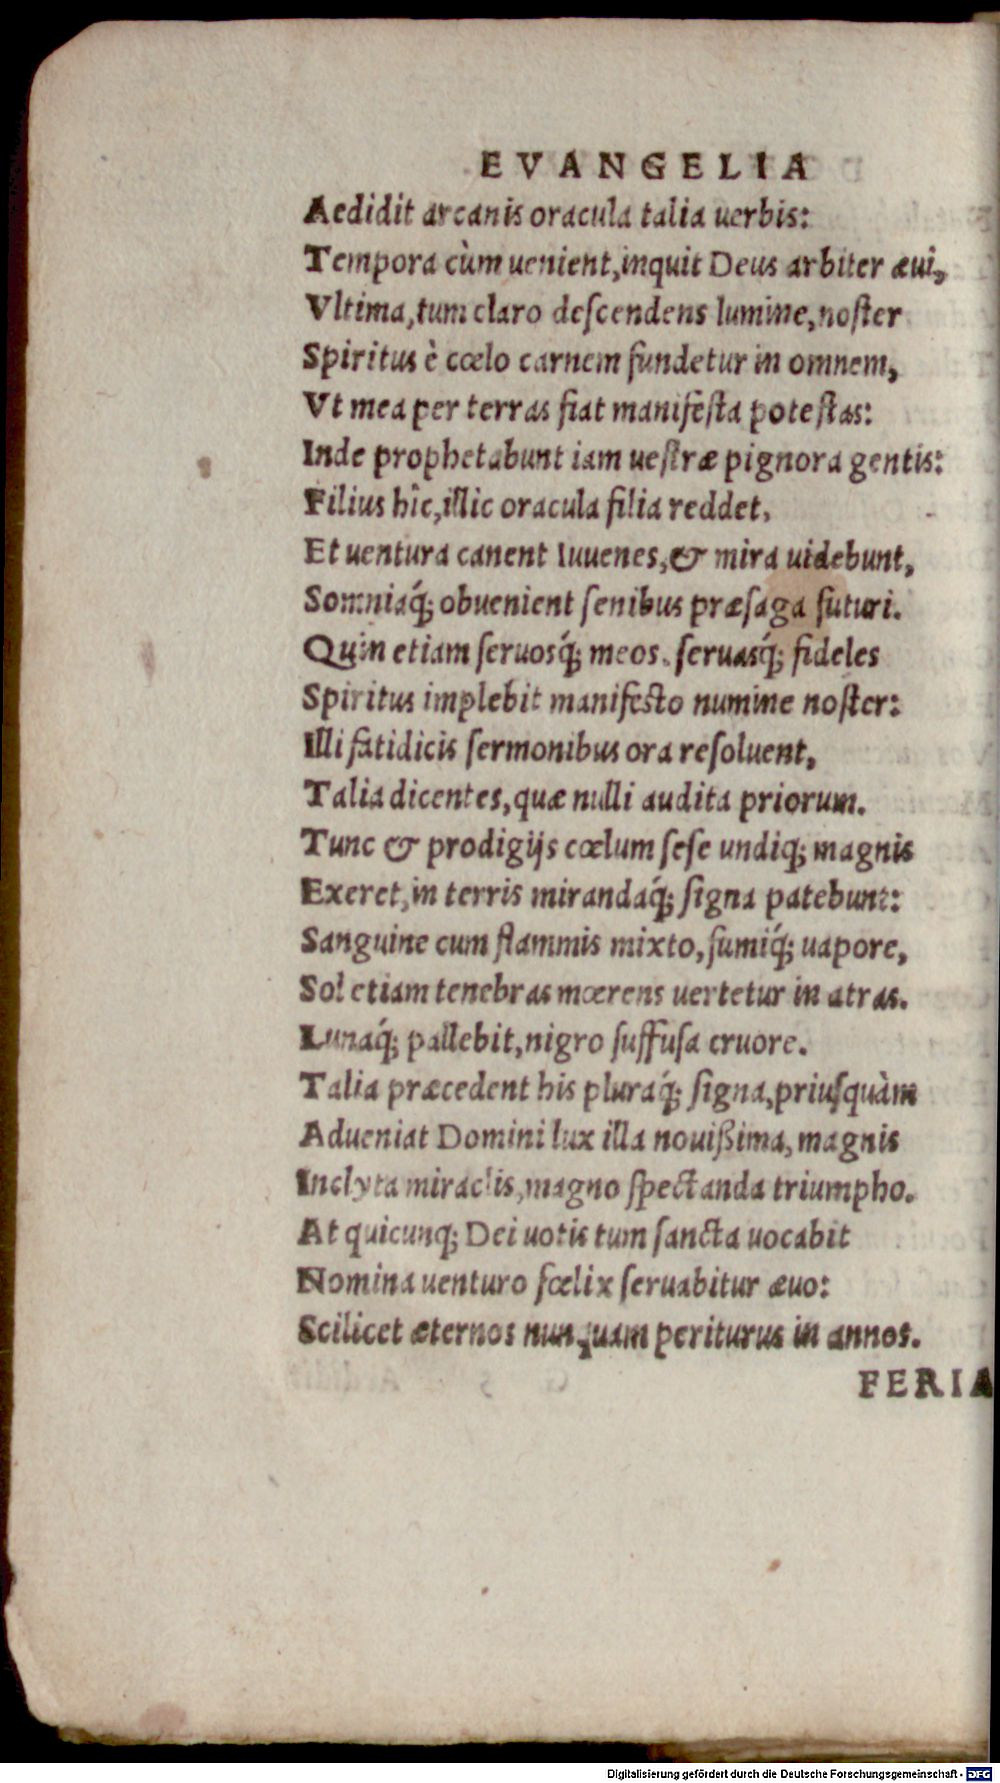 EVANGELIA
Aedidit arcanis oracula talia uerbis:
Tempora cùm uenient, inquit Deus arbiter æui,
Vltima, tum claro deſcendens lumine, noſter
Spiritus è cœlo carnem fundetur in omnem,
Vt mea per terras fiat manifeſta poteſtas:
Inde prophetabunt iam ueſtræ pignora gentis:
Filius hîc, illic oracula filia reddet,
Et uentura canent Iuuenes, & mira uidebunt,
Somniaq́; obuenient ſenibus præſaga futuri.
Quin etiam ſeruosq́; meos, ſeruasq́; fideles
Spiritus implebit manifeſto numine noſter:
Illi fatidicis ſermonibus ora reſoluent,
Talia dicentes, quæ nulli audita priorum.
Tunc & prodigijs cœlum ſeſe undiq; magnis
Exeret, in terris mirandaq́; ſigna patebunt:
Sanguine cum flammis mixto, fumiq́; uapore,
Sol etiam tenebras mœrens uertetur in atras.
Lunaq́; pallebit, nigro ſuffuſa cruore.
Talia præcedent his pluraq́; ſigna, priuſquàm
Adueniat Domini lux illa nouißima, magnis
Inclyta miraclis, magno ſpectanda triumpho.
At quicunq; Dei uotis tum ſancta uocabit
Nomina uenturo fœlix ſeruabitur æuo:
Scilicet æternos nunquam periturus in annos.
FERIA
Digitalisierung gefördert durch die Deutsche Forschungsgemeinschaft - DFG